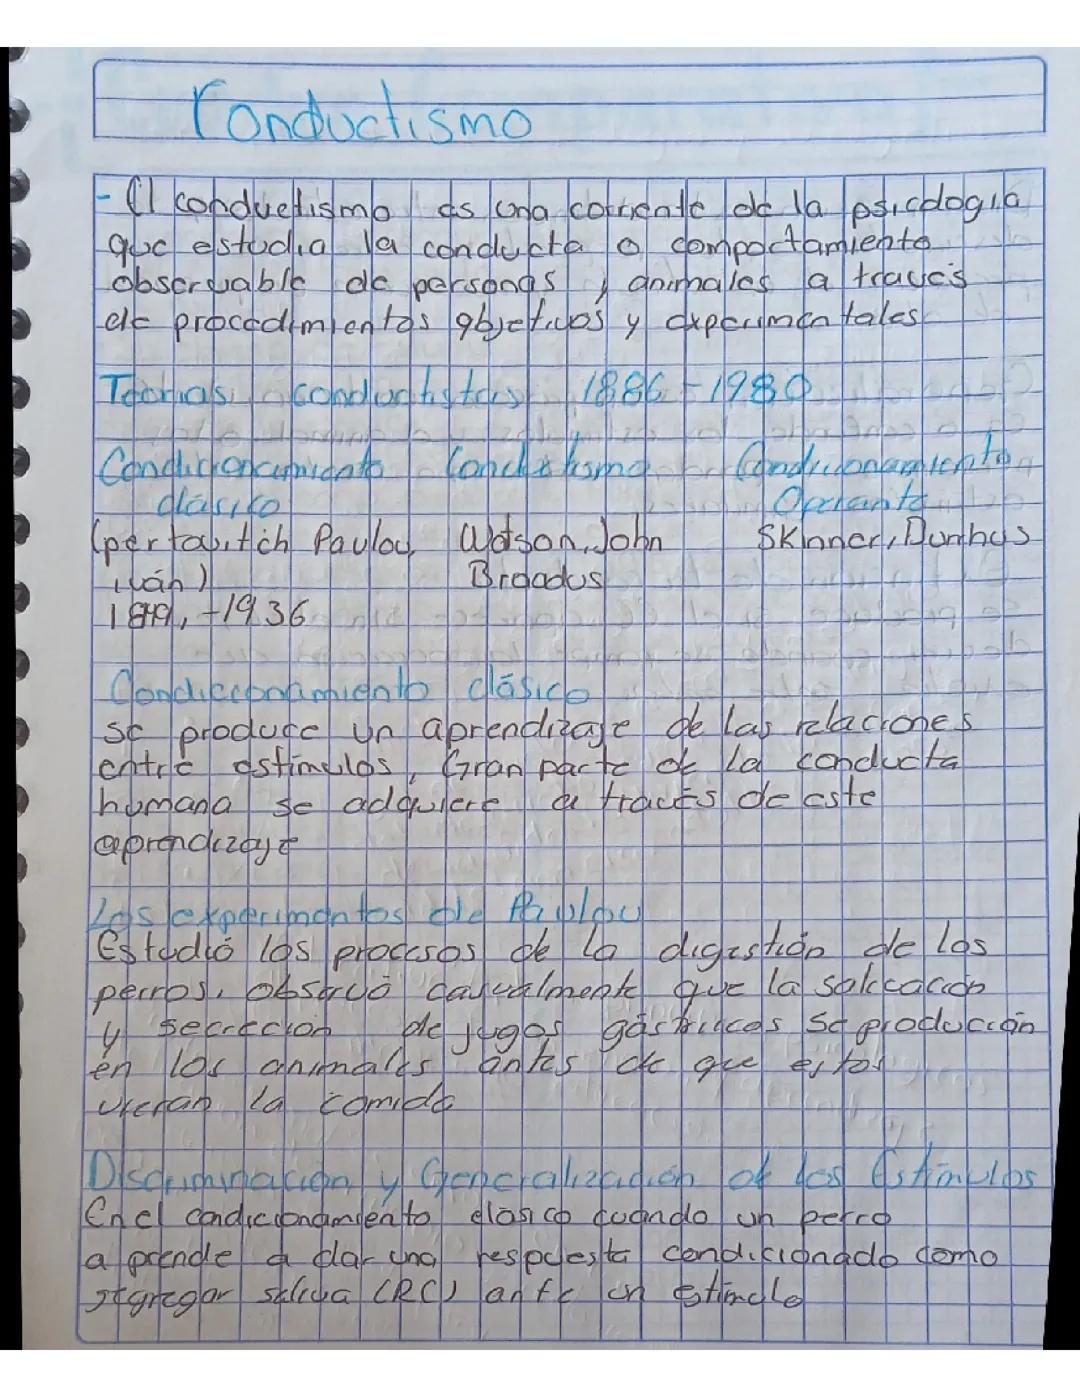 Conductismo
- El conductismo es una corriente de la psicología
que estudia la conducta o comportamiento
observable de personas y animales a través
de procedimientos objetivos y experimentales
Teorias conductistas 1886-1980
Condicionamiento Conductismo Condicionamiento
clásico Operante
(pertovitch Paulov, Watson, John Skinner, Durrhus
iván) Broadus
1849, -1936
Condiccionamiento clásico
se produce un aprendizaje de las relaciones
entre estímulos, Gran parte de la conducta
humana se adquiere a través de este
aprendizaje
Los experimentos de Paulov
Estudió los procesos de la digestión de los
perros, observó casualmente que la salicación
y secreción de jugos gástricos se producción
en los animales antes de que estos
vieran la comida
Discriminación y Generalización de los Estímulos
En el condicionamiento clásico cuando un perro
aprende a dar una respuesta condicionado como
segregar saliva (RC) ante un estímulo